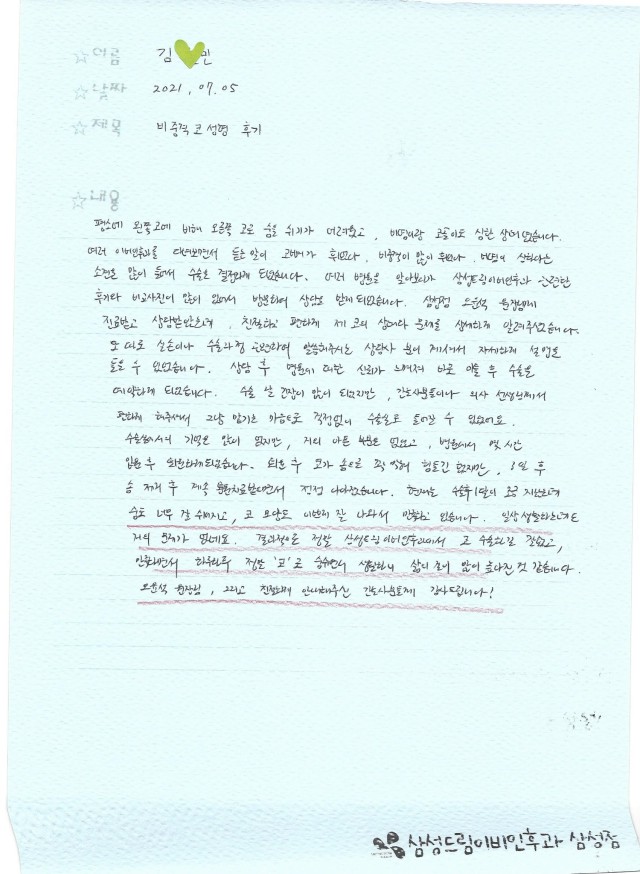 ☆이름 김 민
☆날짜 2021. 07. 05
☆제목 비중격 코 성형 후기
☆내용
평소에 왼쪽 코에 비해 오른쪽 코로 숨을 쉬기가 어려웠고, 비염이랑 코골이도 심한 상태였습니다.
여러 이비인후과를 다녀보면서 듣는 말이 코뼈가 휘었다, 비중격이 많이 휘었다, 비염이 심하다는
소견을 많이 들어서 수술을 결정하게 되었습니다. 여러 병원을 알아보다가 삼성드림이비인후과 관련한
후기와 비교사진이 많이 있어서 방문하여 상담을 받게 되었습니다. 삼성점 오윤석 원장님께
진료받고 상담받았으며, 친절하고 편하게 제 코의 상태와 문제를 상세하게 알려주셨습니다.
또 따로 실손이나 수술과정 관련하여 말씀해주시는 상담사 분이 계셔서 자세하게 설명을
들을 수 있었습니다. 상담 후 병원에 대한 신뢰가 느껴져 바로 이틀 후 수술을
예약하게 되었습니다. 수술 날 긴장이 많이 되었지만, 간호사분들이나 의사 선생님께서
편하게 해주셔서 그냥 맡기는 마음으로 걱정없이 수술실로 들어갈 수 있었어요.
수술실에서의 기억은 많이 없지만, 거의 아픈 부분은 없었고, 병원에서 몇 시간
입원 후 퇴원하게되었습니다. 퇴원 후 코가 솜으로 꽉 막혀 힘들긴 했지만, 3일 후
솜 제거 후 계속 통원치료받으면서 점점 나아졌습니다. 현재는 수술후 1달이 조금 지났는데
숨도 너무 잘 쉬어지고, 코 모양도 이쁘게 잘 나와서 만족하고 있습니다. 일상 생활하는데도
거의 문제가 없네요. 결과적으로 정말 삼성드림이비인후과에서 코 수술하길 잘했고,
만족하면서 하루하루 정말 '코'로 숨쉬면서 생활하니 삶의 질이 많이 높아진 것 같습니다.
오윤석 원장님, 그리고 친절하게 안내해주신 간호사분들께 감사드립니다!
삼성드림이비인후과 삼성점